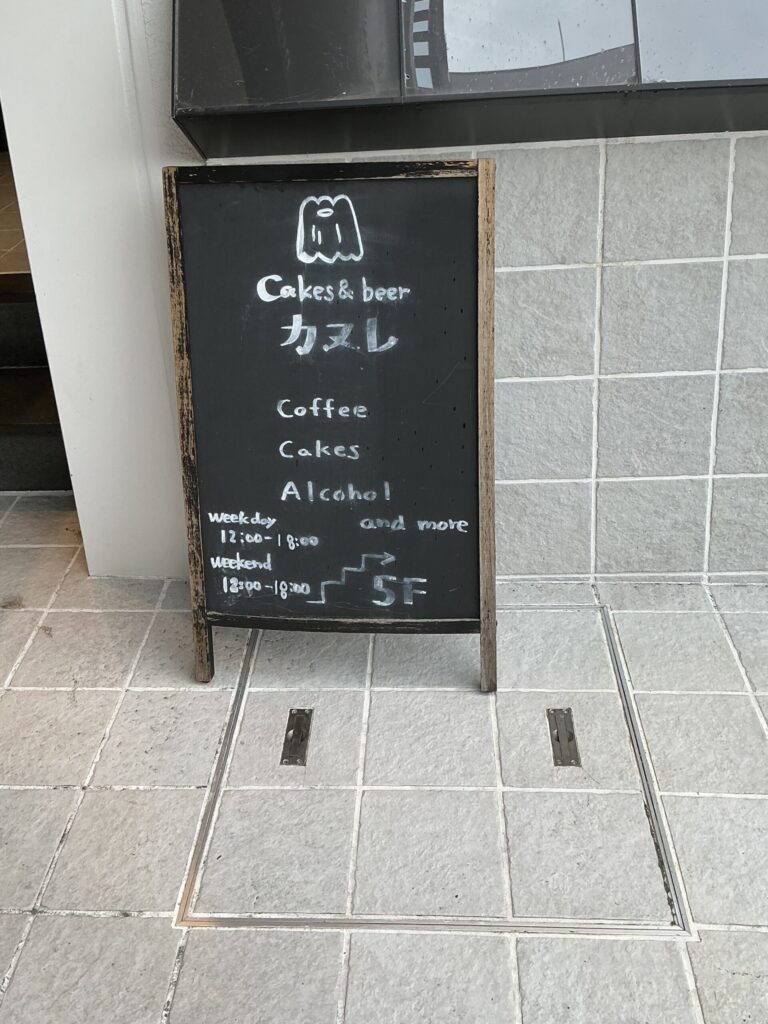 Cakes & beer
カヌレ
Coffee
Cakes
Alcohol
and more
weekday
12:00-18:00
weekend
12:00-18:00
5F